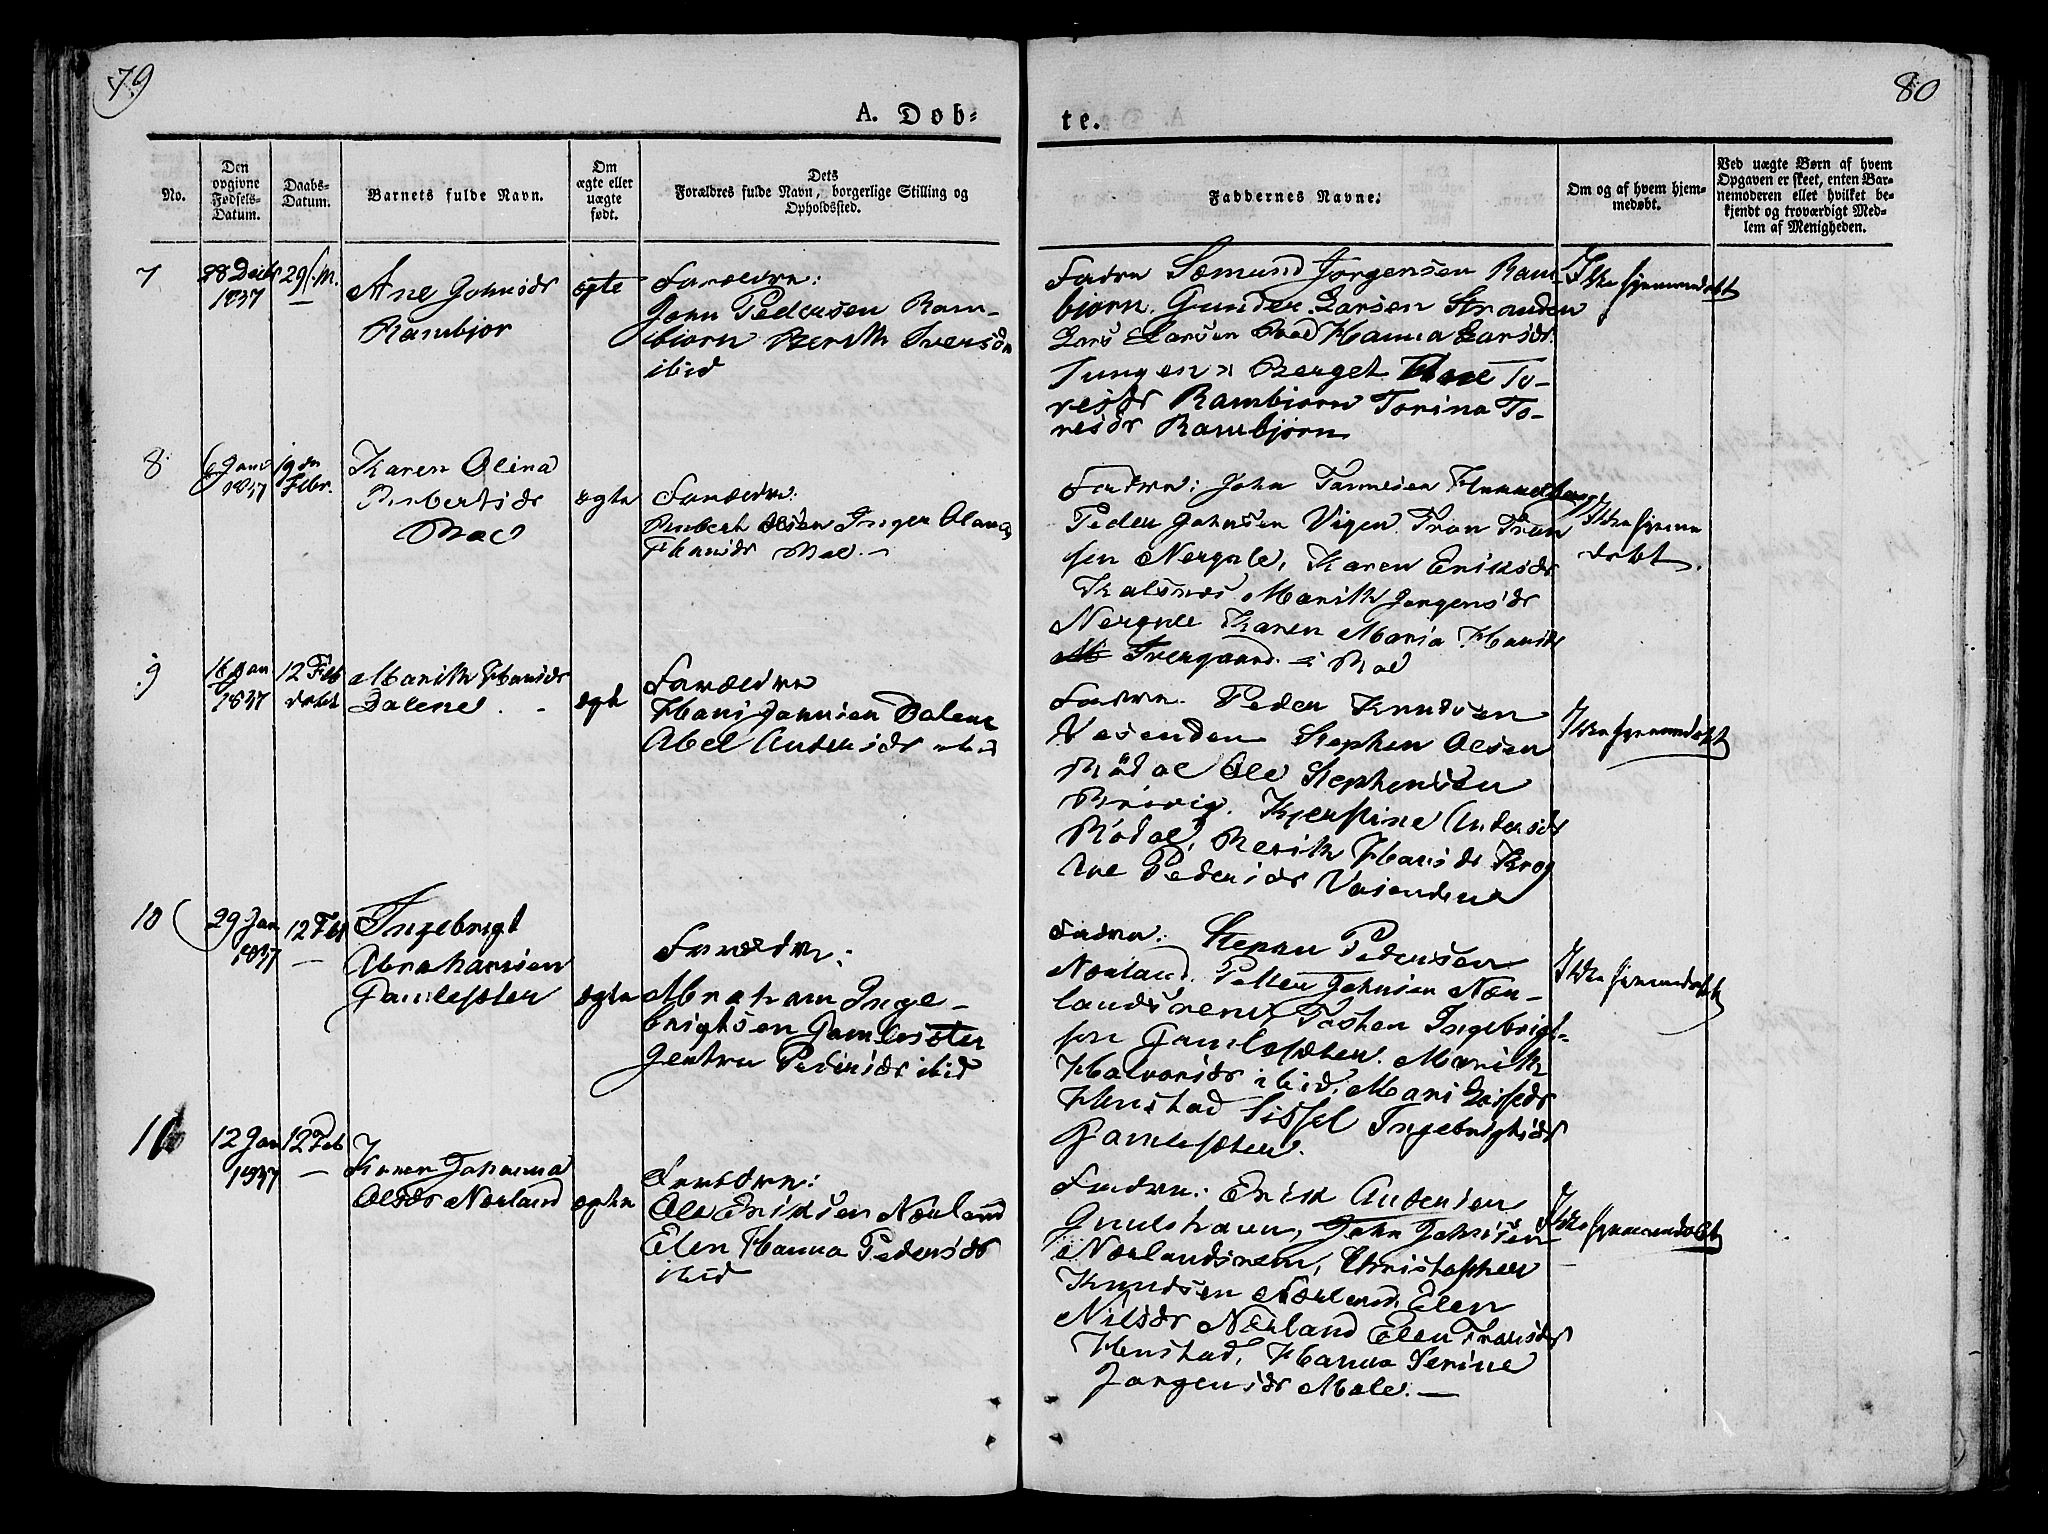 79
80
A. Døb=
te.
No.
Den opgivne Fødsels-Datum.
Daabs-Datum.
Barnets fulde Navn.
Om ægte eller uægte født.
Dets Forældres fulde Navn, borgerlige Stilling og Opholdssted.
Faddernes Navne.
Om og af hvem hjem-medøbt.
Ved uægte Børn af hvem Opgaven er skeet, enten Bar-nemoderen eller hvilket be-kjendt og troværdigt Med-lem af Menigheden.
7
28 Decbr
1837
29
Ane Johnsdr
Rambjør
ægte
Forældre:
John Pedersen Ram-
bjørn Berith Iversdr
ibid
Fadre Sæmund Jørgensen Ram-
bjørn. Gunder Larsen Stranden
Lars Larsen Hanna Larsdr
Tungen Berget Ane To-
resdr Rambjørn Torina To-
resdr Rambjørn
Ikke hjemmedøbt
8
6 Janv
1837
19 de
Febr.
Karen Olina
Enbertsdr
Moe
ægte
Forældre:
Enbert Olsen Inger Olava
Hansdr Moe. -
Fadre: John
Peder Johnsen Vigen Tron Tron
sen Nergale, Karen Eriksdr
Kalsnes Marith Jørgensdr
Nergale Karen Maria Hansdr
Ivergaard. - Moe
Ikke hjemme
døbt.
9
16 Jan
1837
12 Feb
døbt
Marith Hansdr
Dalene. -
ægte
Forældre
Hans Johnsen Dalene
Abel Andersdr ibid
Fadre. Peder Knudsen
Vasenden Stephen Olsen
Rödal Ole Stephensen
Brøvig. Kjerstine Andersdr
Rödal, Berith Hansdr Krog
Ane Pedersdr Vasenden
Ikke hjemmedøbt
10
29 Jan
1837
12 Feb
-
Ingebrigt
Abrahamsen
Gamlesæter
ægte
Forældre:
Abraham Inge-
brigtsen Gamlesæter
Gjertru Pedersdr ibid
Fadre: Stephen Pedersen
Nærland. Petter Johnsen Nær-
landsrem Tosten Ingebrigt-
sen Gamlesæter. Marith
Halvorsdr ibid, Mari Lassedr
Henstad Sissel Ingebrigtsdr
Gamlesæter.
Ikke hjemmedøbt
11
12 Jan
1837
12 Feb
-
Karen Johanna
Olsdr Nærland
ægte
Forældre:
Ole Eriksen Nærland
Elen Hanna Pedersdr
ibid
Fadre: Erik Andersen
Gulshavn, John Johnsen
Nærlandsrem, Christopher
Knudsen Nærland. Elen
Nilsdr Nærland Elen Tronsdr
Henstad, Hanna Serine
Jørgensdr Male. -
Ikke hjemmedøbt